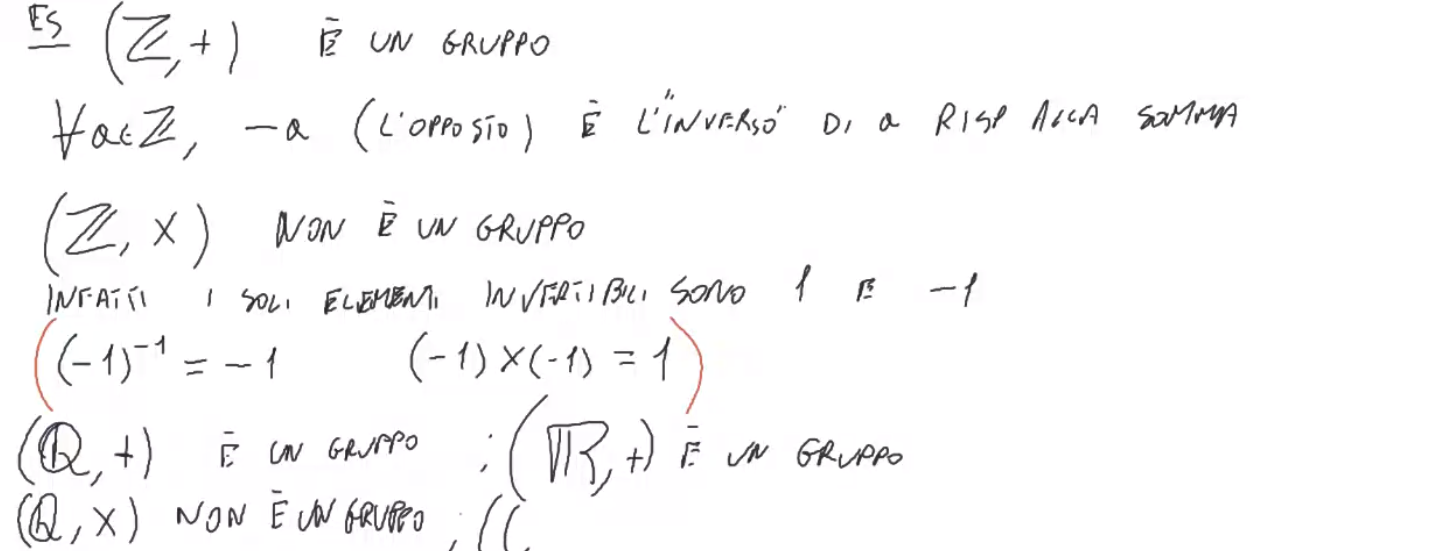 ES (ℤ, +) È UN GRUPPO
∀a∈ℤ, -a (L'OPPOSTO) È L'"INVERSO" DI a RISP ALLA SOMMA
(ℤ, ×) NON È UN GRUPPO
INFATTI I SOLI ELEMENTI INVERTIBILI SONO 1 E -1
((-1)⁻¹ = -1 (-1)×(-1) = 1)
(ℚ, +) È UN GRUPPO ; (ℝ, +) È UN GRUPPO
(ℚ, ×) NON È UN GRUPPO ; ((